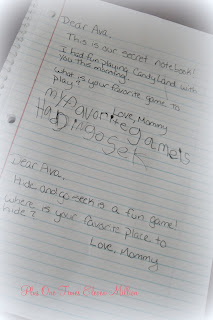 Dear Ava,
This is our secret notebook!
I had fun playing CandyLand with
you this morning.
What is your favorite game to
play?
Love, Mommy
my favorite game is
Hadingogsek
Dear Ava,
Hide and go seek is a fun game!
Where is your favorite place to
hide?
Love, Mommy
Plus One Times Eleven Million